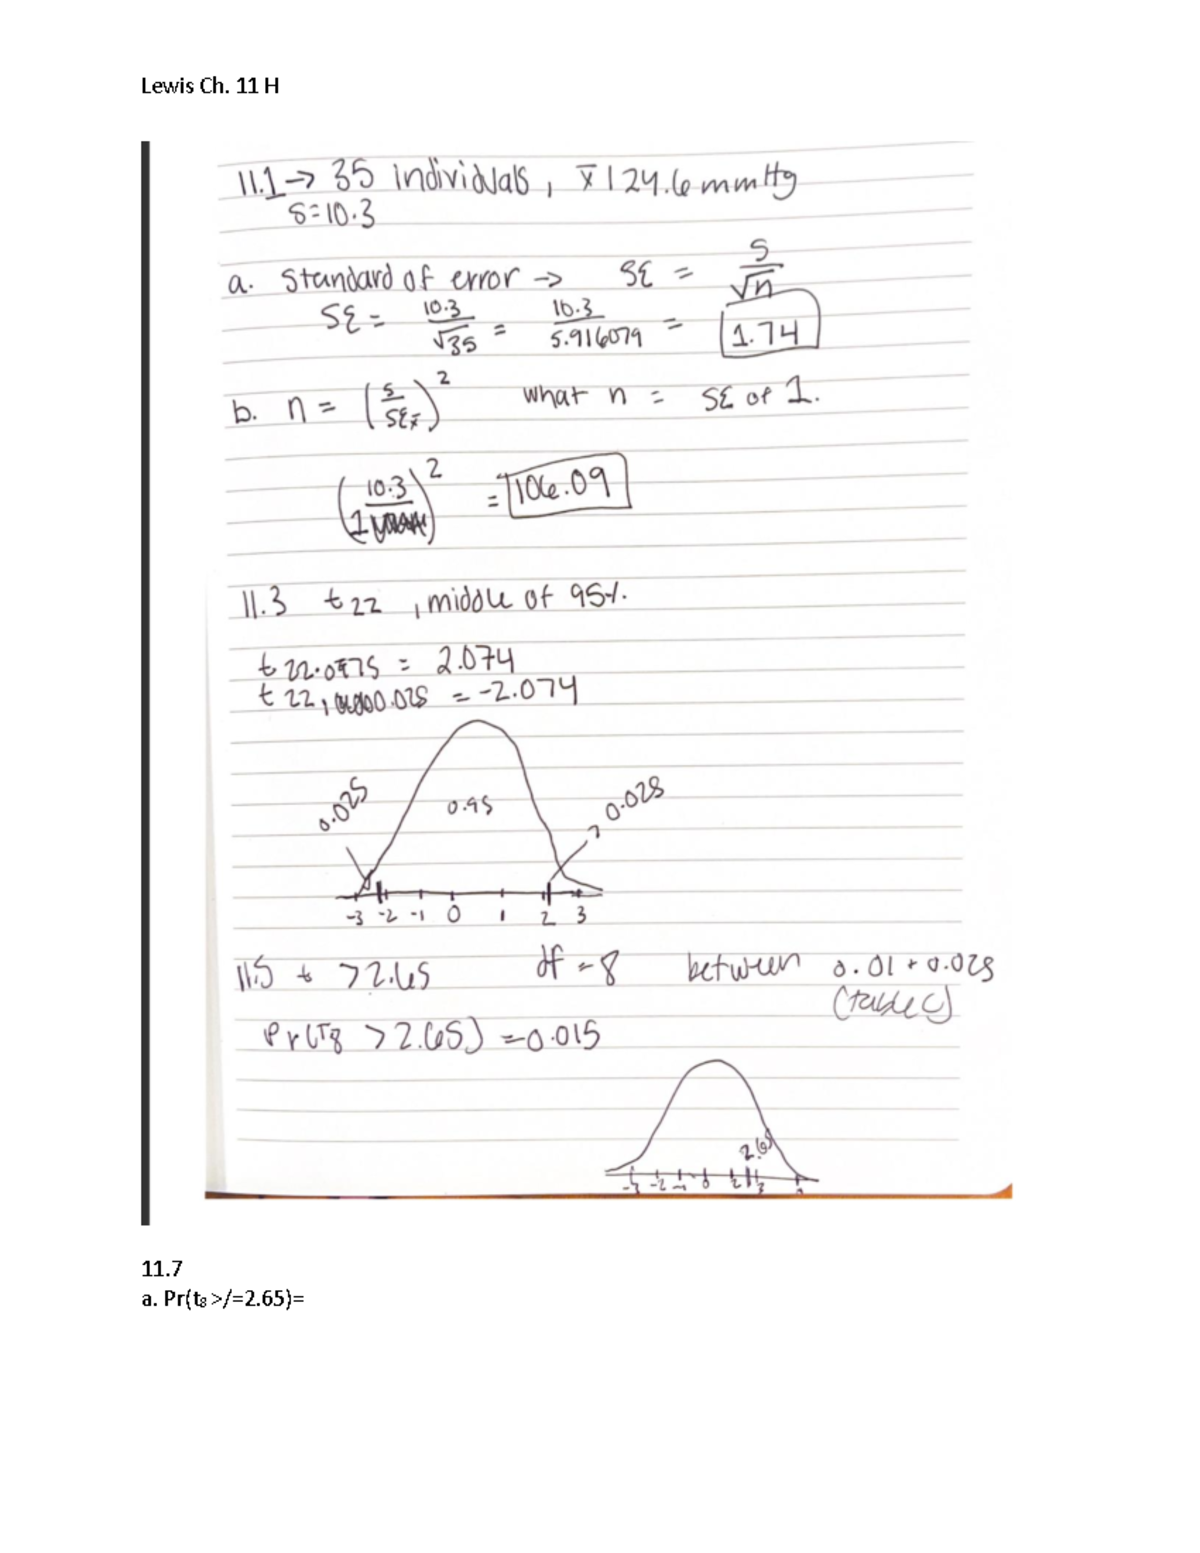 Lewis Ch. 11 H
11.1→ 35 individuals, x̄ 124.6 mmHg
s=10.3
a. Standard of error → SE = s/√n
SE = 10.3/√35 = 10.3/5.916079 = 1.74
b. n = (s/SEx̄)² what n = SE of 1.
(10.3/1)² = 106.09
11.3 t22, middle of 95%.
t 22.0975 = 2.074
t 22, 0.025 = -2.074
0.025 0.95 0.025
-3 -2 -1 0 1 2 3
11.5 t >2.65 df = 8 between 0.01 + 0.025
(table C)
Pr(T8 >2.65) =0.015
2.65
-3 -2 -1 0 2 3
11.7
a. Pr(t8 >/=2.65)=